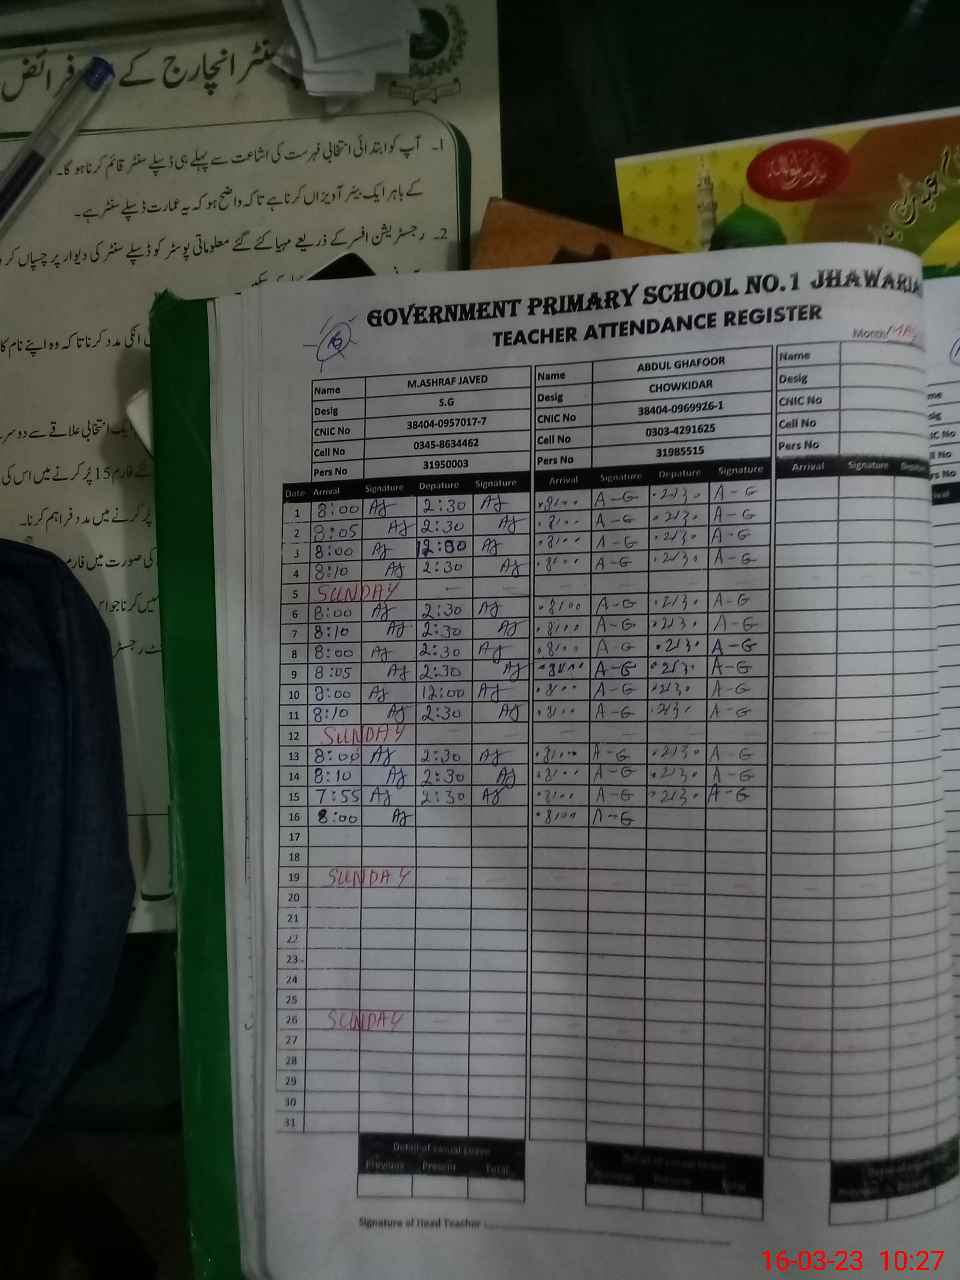 سنٹر انچارج کے فرائض
1۔ آپ کو ابتدائی انتخابی فہرست کی اشاعت سے پہلے ہی ڈسپلے سنٹر قائم کرنا ہو گا۔
کے باہر ایک بینر آویزاں کرنا ہے تاکہ واضح ہو کہ یہ عمارت ڈسپلے سنٹر ہے۔
2۔ رجسٹریشن افسر کے ذریعے مہیا کئے گئے معلوماتی پوسٹر کو ڈسپلے سنٹر کی دیوار پر چسپاں کر
انکی مدد کرنا تاکہ وہ اپنے نام کا
انتخابی علاقے سے دوسر
فارم 15 پُر کرنے میں اس کی
پُر کرنے میں مدد فراہم کرنا۔
کی صورت میں فارم
GOVERNMENT PRIMARY SCHOOL NO.1 JHAWARIA
TEACHER ATTENDANCE REGISTER
Month
Name M.ASHRAF JAVED Name ABDUL GHAFOOR Name
Desig S.G Desig CHOWKIDAR Desig
CNIC No 38404-0957017-7 CNIC No 38404-0969926-1 CNIC No
Cell No 0345-8634462 Cell No 0303-4291625 Cell No
Pers No 31950003 Pers No 31985515 Pers No
Date Arrival Signature Depature Signature Arrival Signature Depature Signature Arrival Signature
1 8:00 AJ 2:30 AJ 8:00 A-G 2:30 A-G
2 8:05 AJ 2:30 AJ 8:00 A-G 2:30 A-G
3 8:00 AJ 12:00 AJ 8:00 A-G 2:30 A-G
4 8:10 AJ 2:30 AJ 8:00 A-G 2:30 A-G
5 SUNDAY
6 8:00 AJ 2:30 AJ 8:00 A-G 2:30 A-G
7 8:10 AJ 2:30 AJ 8:00 A-G 2:30 A-G
8 8:00 AJ 2:30 AJ 8:00 A-G 2:30 A-G
9 8:05 AJ 2:30 AJ 8:00 A-G 2:30 A-G
10 8:00 AJ 12:00 AJ 8:00 A-G 2:30 A-G
11 8:10 AJ 2:30 AJ 8:00 A-G 2:30 A-G
12 SUNDAY
13 8:00 AJ 2:30 AJ 8:00 A-G 2:30 A-G
14 8:10 AJ 2:30 AJ 8:00 A-G 2:30 A-G
15 7:55 AJ 2:30 AJ 8:00 A-G 2:30 A-G
16 8:00 AJ 8:00 A-G
17
18
19 SUNDAY
20
21
22
23
24
25
26 SUNDAY
27
28
29
30
31
Detail of casual Leave
Previous Present Total
Signature of Head Teacher
16-03-23 10:27